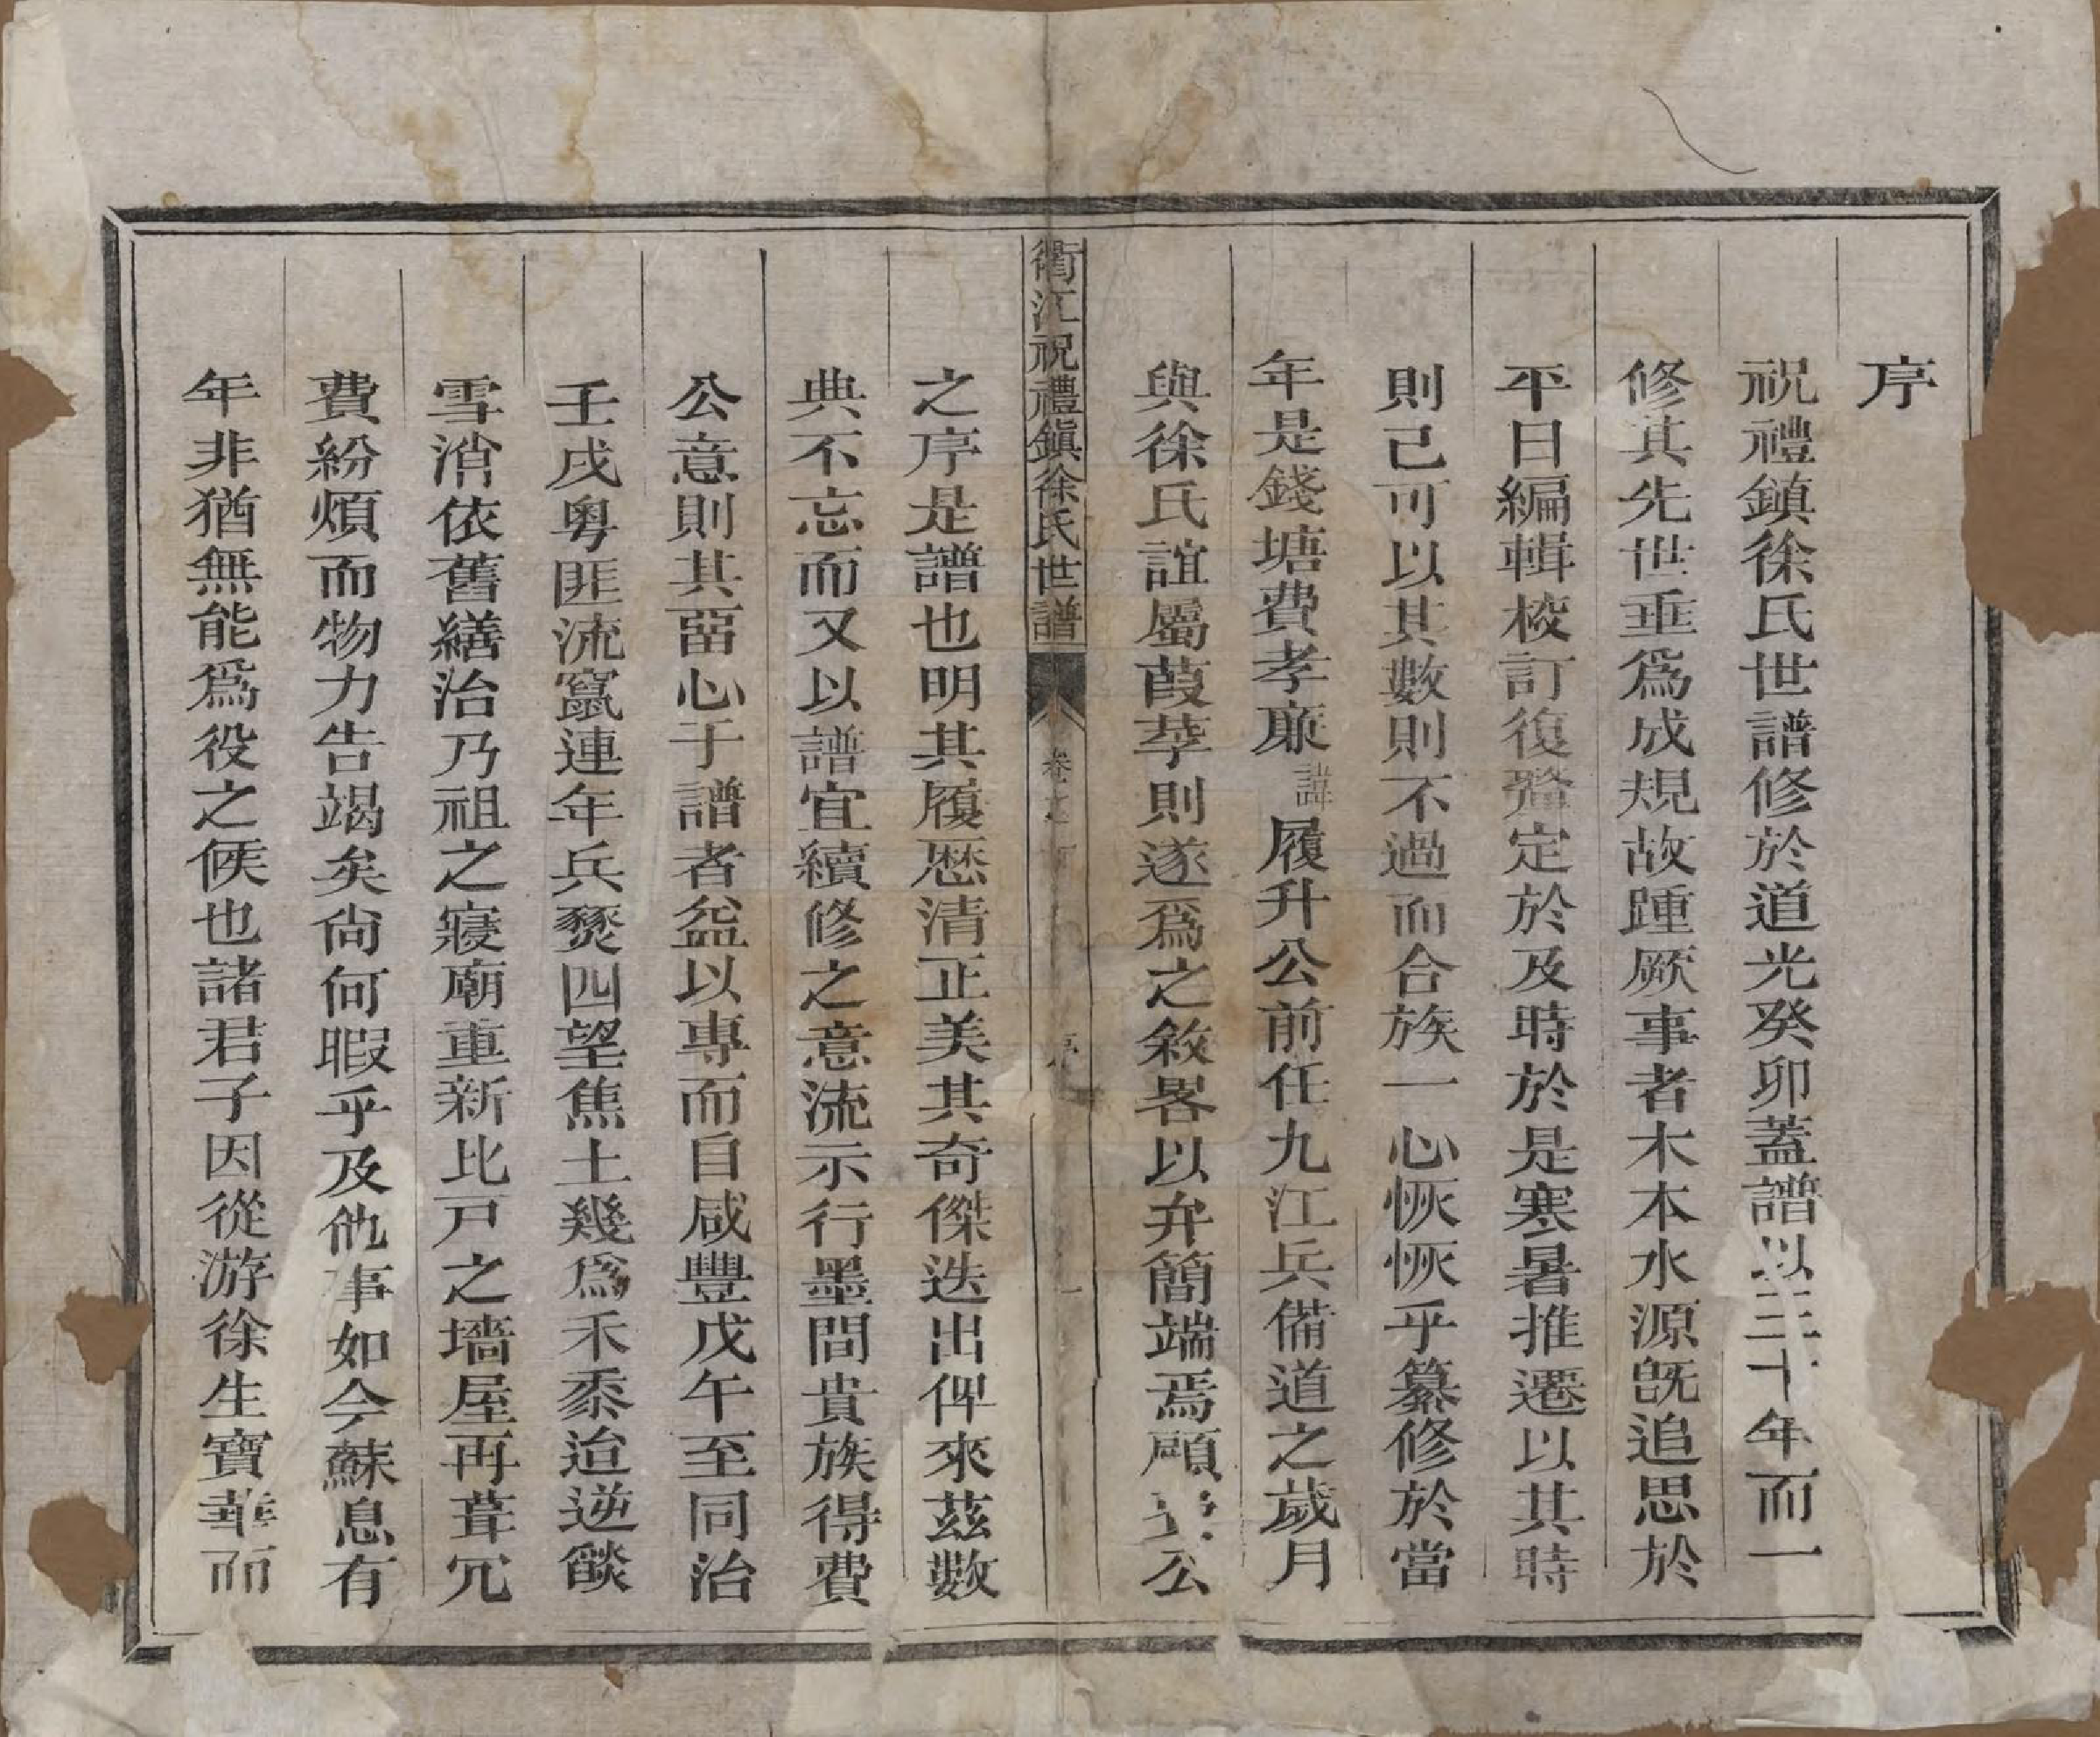 序
祝禮鎮徐氏世譜修於道光癸卯蓋譜以三十年而一
修其先世垂爲成規故踵厥事者木本水源既追思於
平日編輯校訂復釐定於及時於是寒暑推遷以其時
則己可以其數則不過而合族一心恢恢乎纂修於當
年是錢塘費孝廉諱履升公前任九江兵備道之歲月
與徐氏誼屬葭莩則遂爲之敘畧以弁簡端焉顧 公
衢江祝禮鎮徐氏世譜 卷之 序 一
之序是譜也明其履歷清正美其奇傑迭出俾來茲數
典不忘而又以譜宜續修之意流示行墨間貴族得費
公意則其留心于譜者益以專而自咸豐戊午至同治
壬戌粵匪流竄連年兵燹四望焦土幾爲禾黍迨逆燄
雪消依舊繕治乃祖之寢廟重新比戸之墻屋再葺冗
費紛煩而物力告竭矣尙何暇乎及他事如今蘇息有
年非猶無能爲役之候也諸君子因從游徐生寶華而